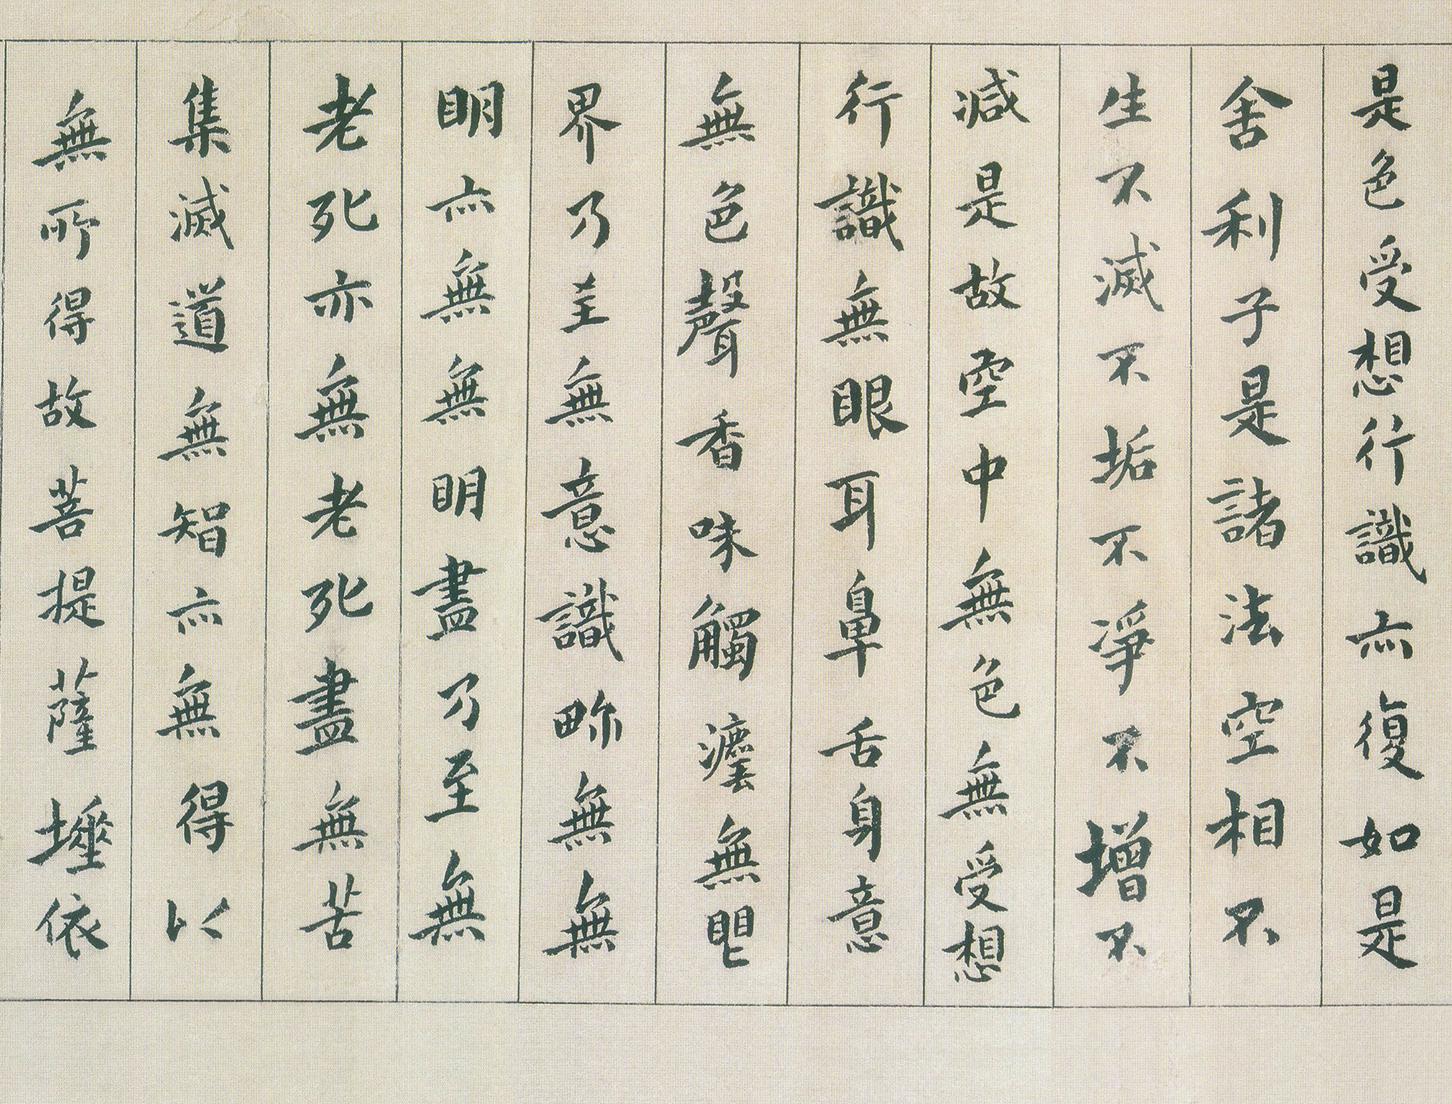 是色受想行識亦復如是
舍利子是諸法空相不
生不滅不垢不淨不增不
減是故空中無色無受想
行識無眼耳鼻舌身意
無色聲香味觸法無眼
界乃至無意識界無無
明亦無無明盡乃至無
老死亦無老死盡無苦
集滅道無智亦無得以
無所得故菩提薩埵依